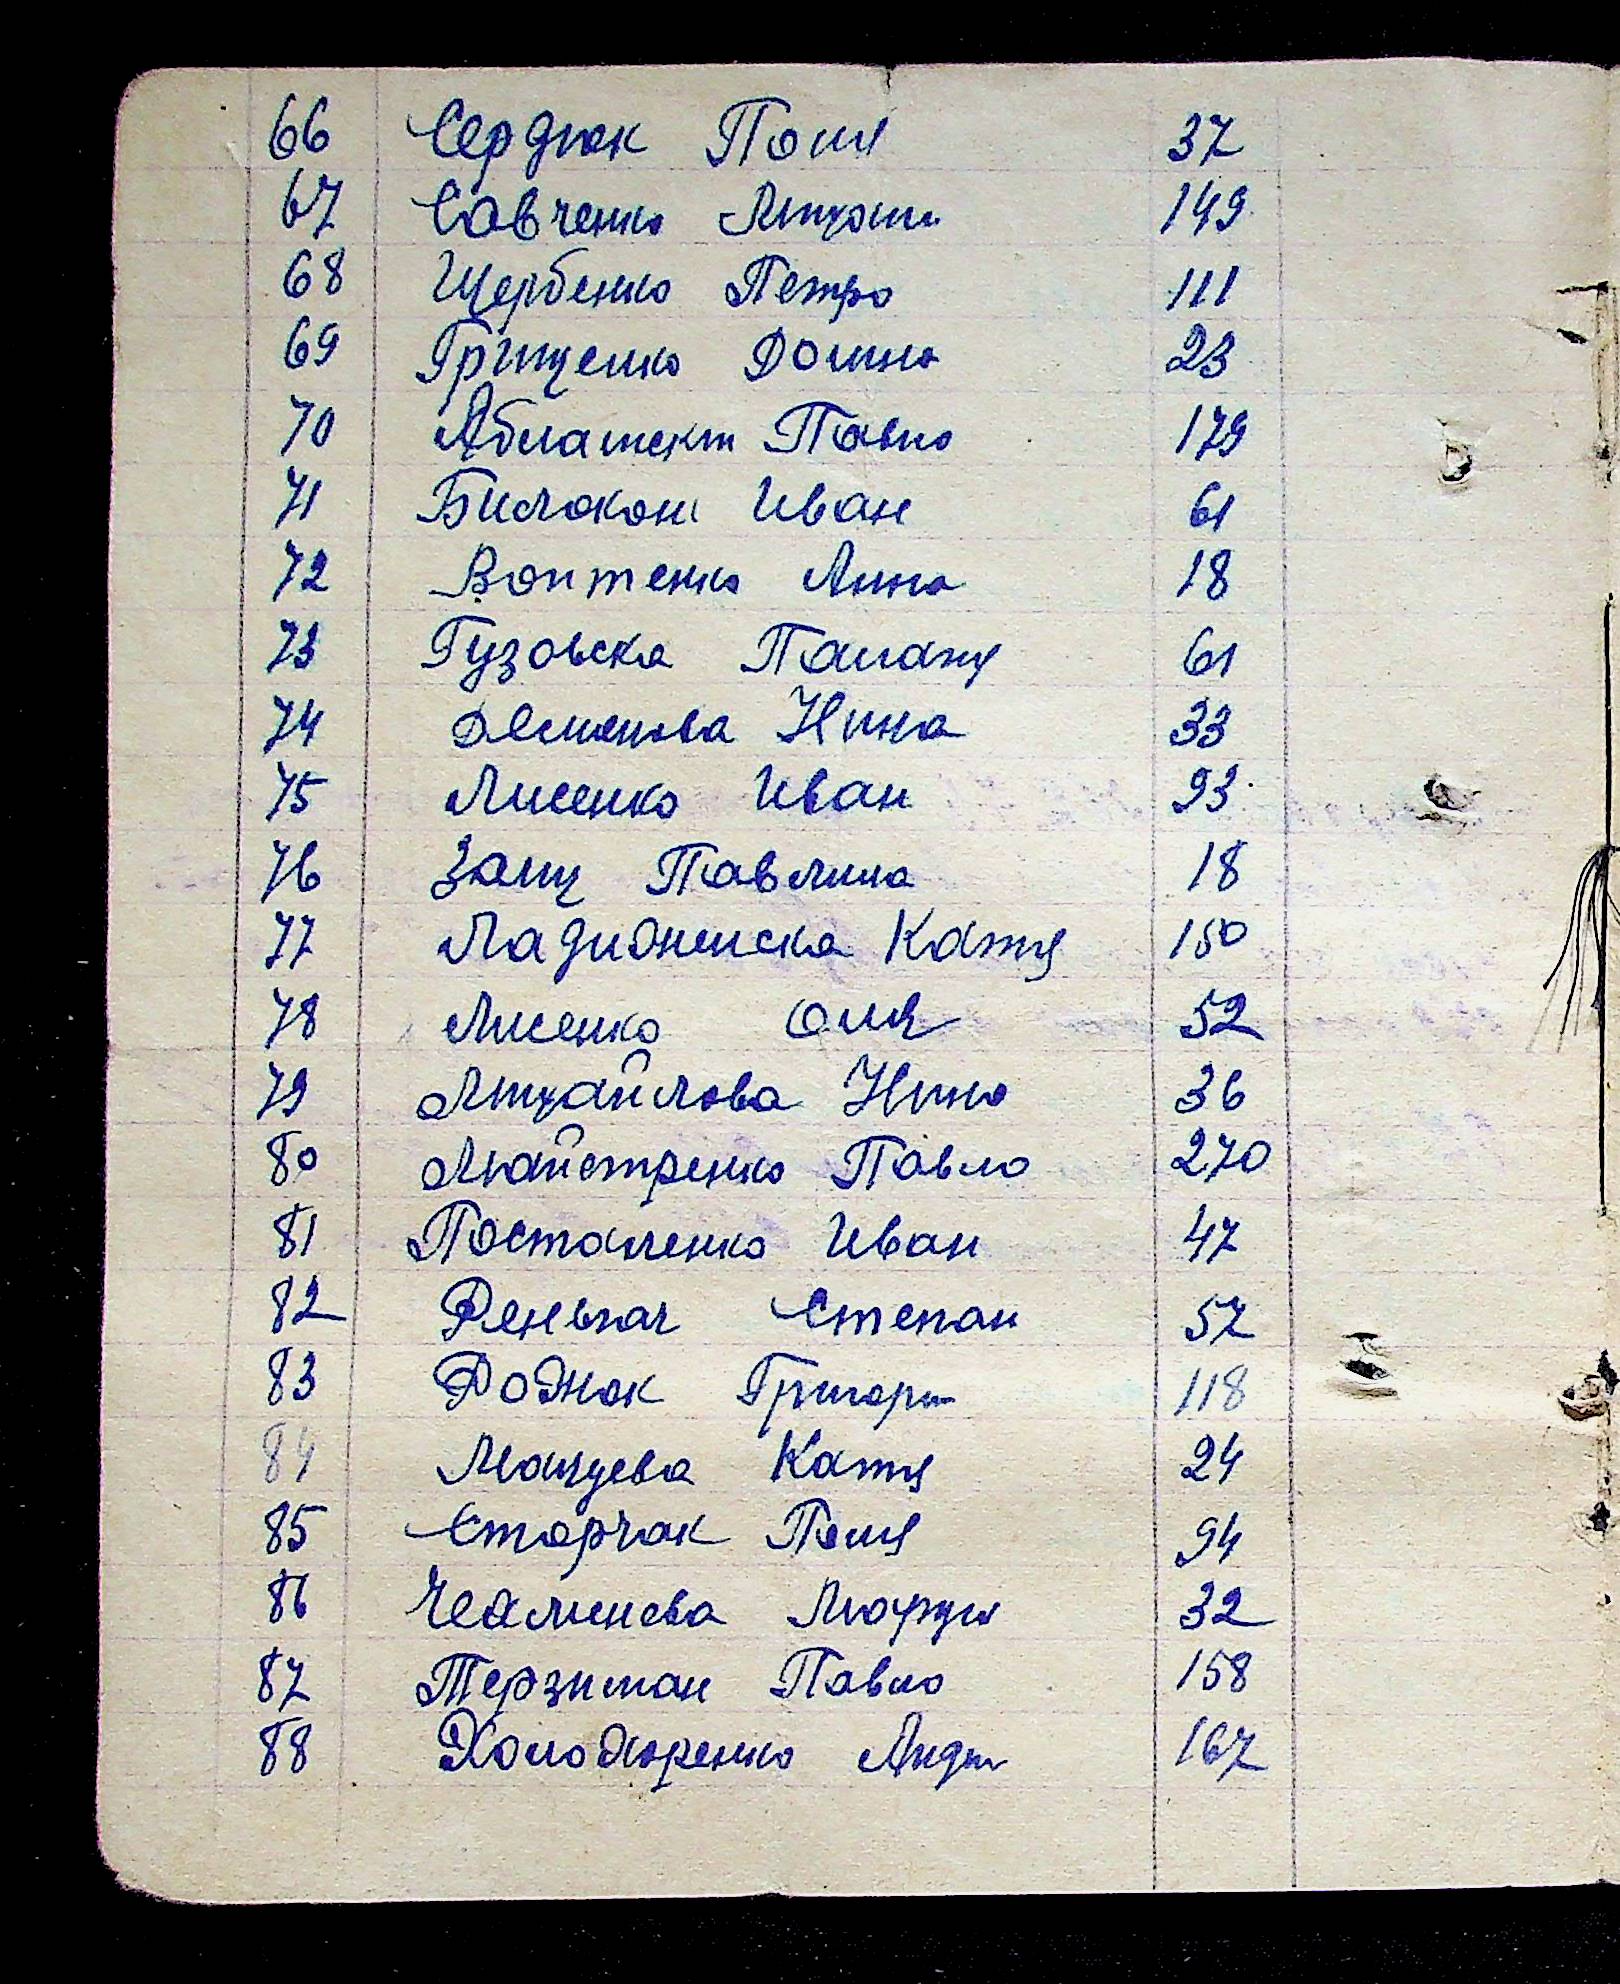 66 Сердюк Поля 37
67 Савченко 149
68 Щербенко Петро 111
69 Грищенко Домна 23
70 Павло 179
71 Билоконь Иван 61
72 Войтенко Анна 18
73 Гузовска Палажя 61
74 Демянова Нина 33
75 Лисенко Иван 93
76 Заяц Павлина 18
77 Катя 150
78 Лисенко Оля 52
79 Михайлова Нина 36
80 Майстренко Павло 270
81 Постоленко Иван 47
82 Степан 57
83 Роднюк Григори 118
84 Катя 24
85 Сторчак Поля 94
86 32
87 Терзиман Павло 158
88 Холодюренко Андри 167